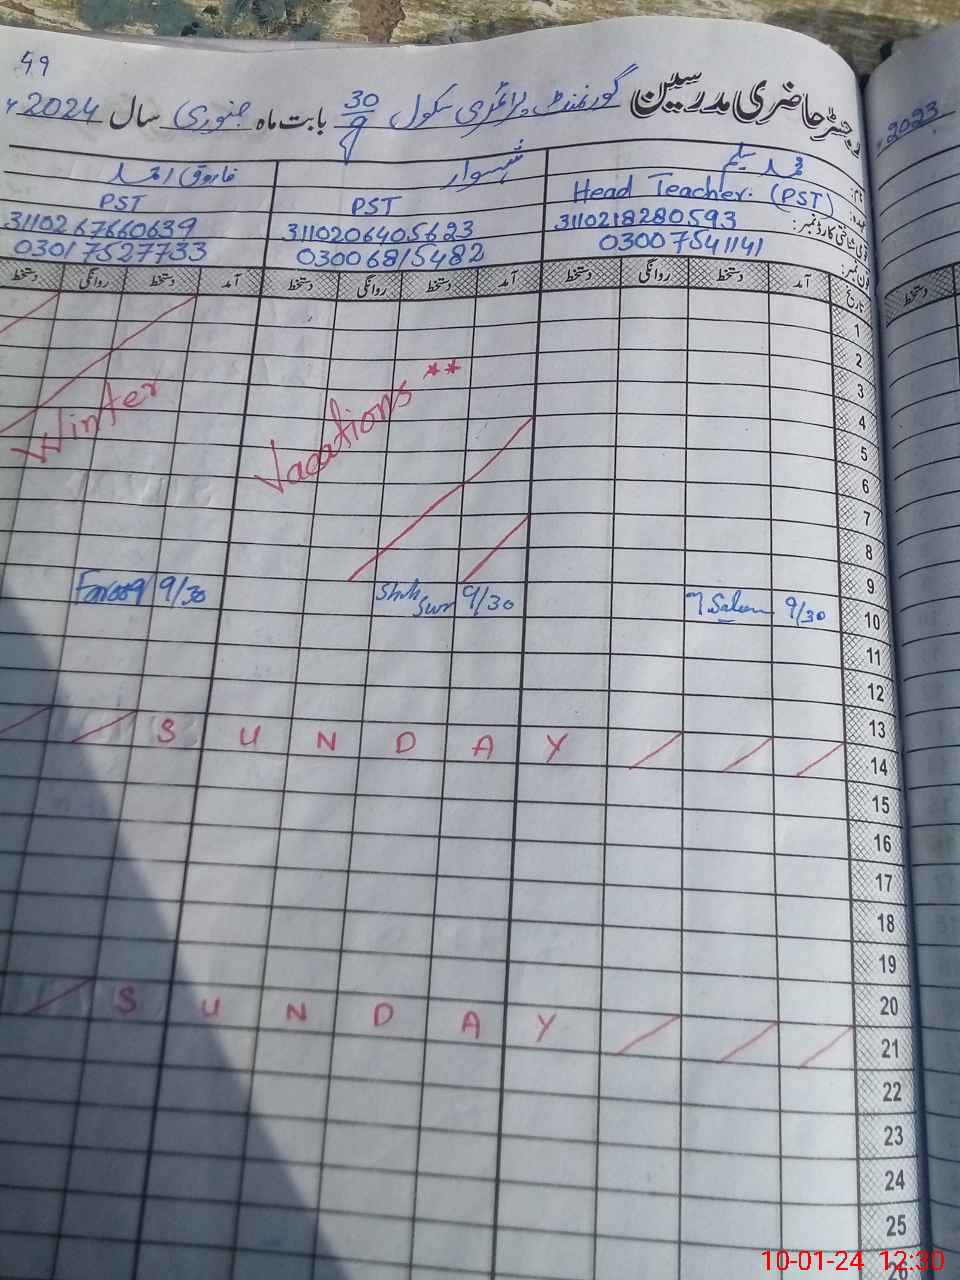 49
رجسٹر حاضری مدرسین گورنمنٹ پرائمری سکول 30/9 بابت ماہ جنوری سال 2024ء
2023ء
نام: محمد سلیم شہسوار فاروق احمد
عہدہ: Head Teacher. (PST) PST PST
قومی شناختی کارڈ نمبر: 3110218280593 3110206405623 3110267660639
فون نمبر: 03007541141 03006815482 03017527733
تاریخ آمد دستخط روانگی دستخط آمد دستخط روانگی دستخط آمد دستخط روانگی دستخط
دستخط
1
2
3
Winter Vacations **
4
5
6
7
8
9
10 9/30 M Saleem 9/30 Shah Swr 9/30 Farooq
11
12
13
14 S U N D A Y
15
16
17
18
19
20
21 S U N D A Y
22
23
24
25
26
10-01-24 12:30